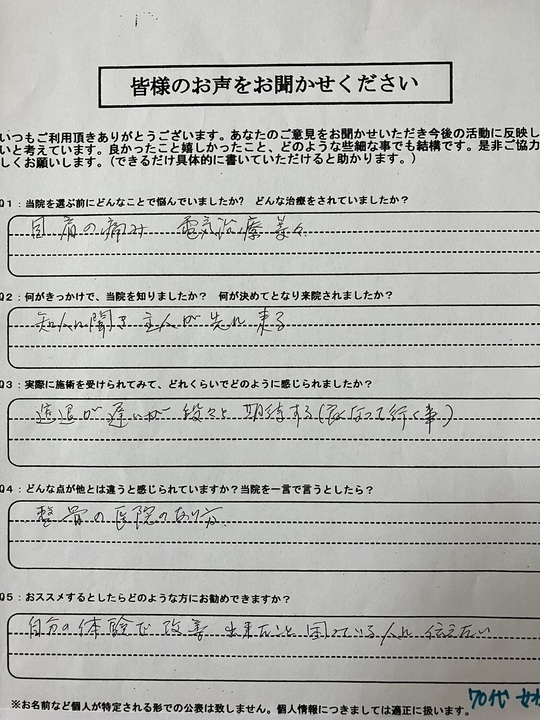 皆様のお声をお聞かせください
いつもご利用頂きありがとうございます。あなたのご意見をお聞かせいただき今後の活動に反映し
いと考えています。良かったこと嬉しかったこと、どのような些細な事でも結構です。是非ご協力
しくお願いします。(できるだけ具体的に書いていただけると助かります。)
Q1：当院を選ぶ前にどんなことで悩んでいましたか?　どんな治療をされていましたか?
肩の痛み　電気治療
Q2：何がきっかけで、当院を知りましたか?　何が決めてとなり来院されましたか?
知人に聞き 主人が先に来る
Q3：実際に施術を受けられてみて、どれくらいでどのように感じられましたか?
が遅いが 段々と 期待する(良くなって行く事)
Q4：どんな点が他とは違うと感じられていますか?当院を一言で言うとしたら?
整骨の医院のあり方
Q5：おススメするとしたらどのような方にお勧めできますか?
自分の体験で 改善 出来たこと 困っている人に 伝えたい
70代 女
※お名前など個人が特定される形での公表は致しません。個人情報につきましては適正に扱います。